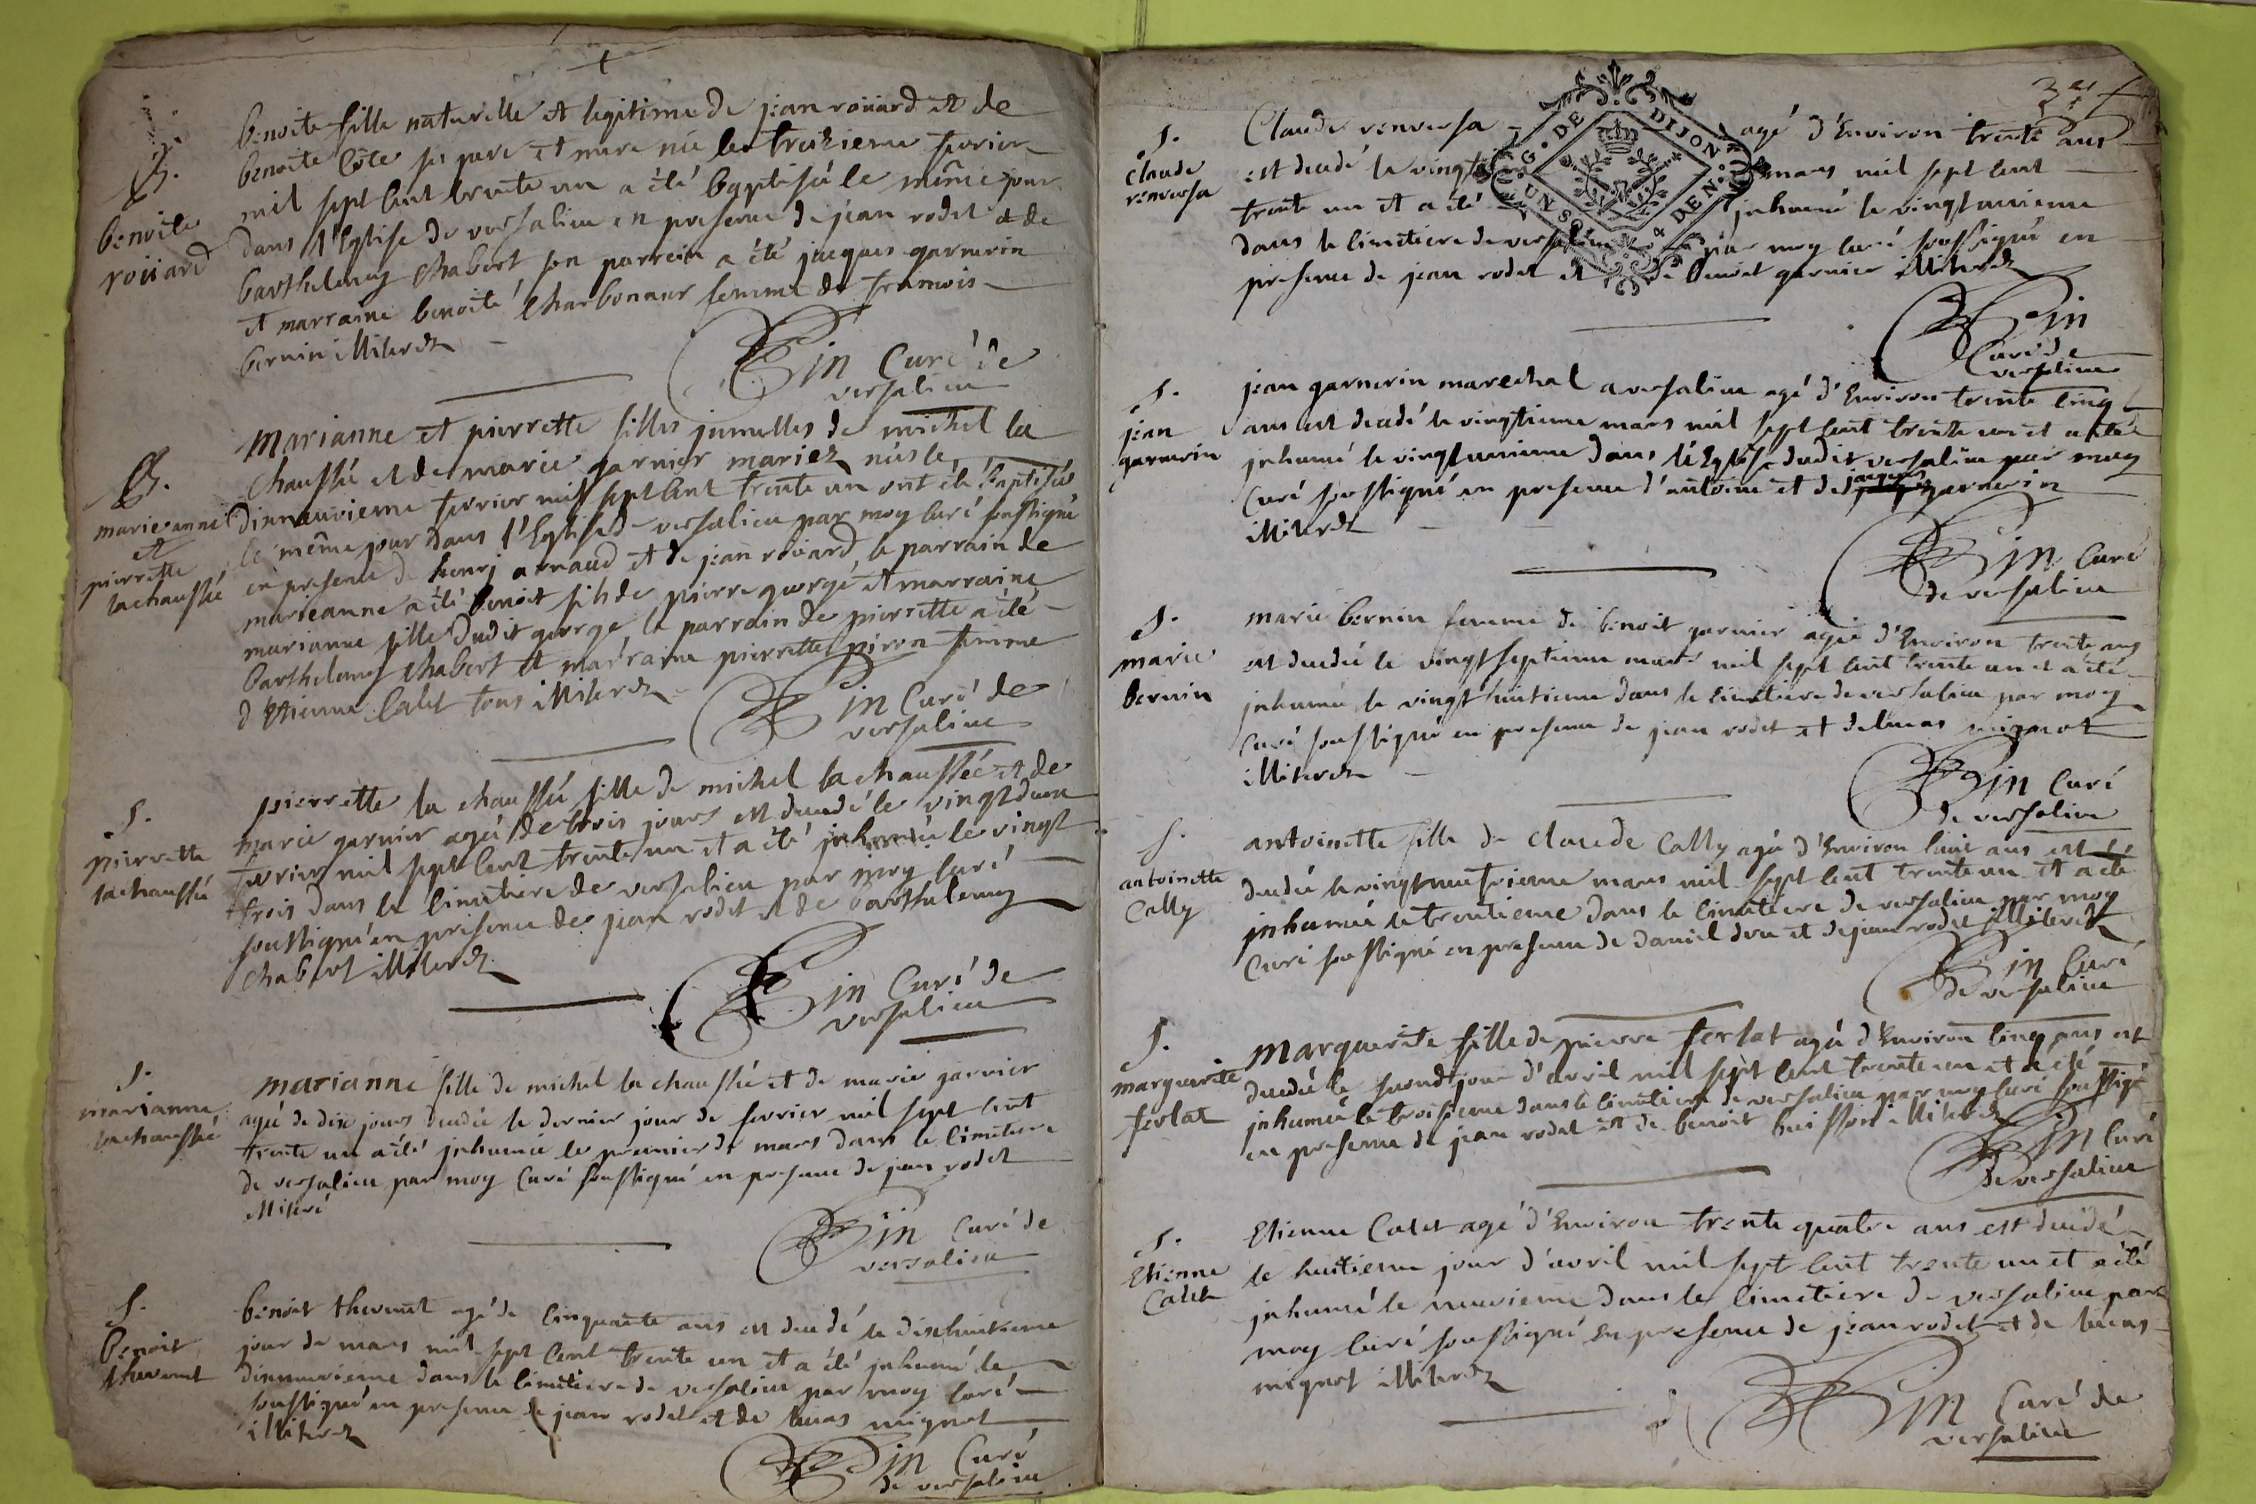 B.
benoite
roüard
benoite fille naturelle et legitime de jean roüard et de
benoite Côte ses pere et mere née le treizieme fevrier
mil sept cent trente un a été baptisée le même jour
dans l'Eglise de versalieu en presence de jean rodet et de
barthelemy chabert son parrein a été jacques garnerin
et marraine benoite charbonneur femme de francois
bernin illiterez
Gin Curé de
versalieu
B.
marieanne
et
pierrette
lachaussée
Marianne et pierrette filles jumelles de michel la
chaussée et de marie garnier mariez nées le
dixneuvieme fevrier mil sept cent trente un ont été baptisées
le même jour dans l'Eglise de versalieu par moy curé soussigné
en presence de henri arnaud et de jean roüard, le parrain de
marieanne a été benoit fils de pierre george et marraine
marianne fille dudit george, le parrain de pierrette a été
barthelemy chabert et marraine pierrette piron femme
d'Etienne Calet tous illiterez
Gin Curé de
versalieu
S.
pierrette
lachaussée
pierrette la chaussée fille de michel la chaussée et de
marie garnier agée de trois jours est decedée le vingtdeux
fevrier mil sept cent trente un et a été inhumée le vingt
trois dans le cimetiere de versalieu par moy curé
soussigné en presence de jean rodet et de barthelemy
chabert illiterez
Gin Curé de
versalieu
S.
marianne
lachaussée
marianne fille de michel la chaussée et de marie garnier
agée de dix jours decedée le dernier jour de fevrier mil sept cent
trente un a été inhumée le premier de mars dans le cimetiere
de versalieu par moy Curé soussigné en presence de jean rodet
illiteré
Gin Curé de
versalieu
S.
benoit
thevenet
benoit thevenet agé de cinquante ans est decedé le dixhuitieme
jour de mars mil sept cent trente un et a été inhumé le
dixneuvieme dans le cimetiere de versalieu par moy curé
soussigné en presence de jean rodet et de lucas mignot
illiterez
Gin Curé
de versalieu
G. DE DIJON
UN SOL 4 DEN.
S.
claude
renversa
Claude renversa agé d'Environ trente ans
est decedé le vingt mars mil sept cent
trente un et a été inhumé le vingtunieme
dans le cimetiere de versalieu par moy curé soussigné en
presence de jean rodet et de benoit garnier illiterez
Gin
Curé de
versalieu
S.
jean
garnerin
jean garnerin marechal a versalieu agé d'Environ trente cinq
ans est decedé le vingtieme mars mil sept cent trente un et a été
inhumé le vingtunieme dans l'Eglise dudit versalieu par moy
Curé soussigné en presence d'antoine et de jacques garnerin
illiterez
Gin Curé
de versalieu
S.
marie
bernin
marie bernin femme de benoit garnier agée d'Environ trente ans
est decedée le vingtseptieme mars mil sept cent trente un et a été
inhumée le vingt huitieme dans le cimetiere de versalieu par moy
curé soussigné en presence de jean rodet et de lucas mignot
illiterez
Gin Curé
de versalieu
S.
antoinette
Cally
antoinette fille de claude Cally agée d'Environ huit ans est
decedée le vingtneufvieme mars mil sept cent trente un et a été
inhumée le trentieme dans le cimetiere de versalieu par moy
Curé soussigné en presence de daniel et de jean rodet illiterez
Gin Curé
de versalieu
S.
marguerite
ferlat
Marguerite fille de pierre ferlat agée d'Environ cinq ans est
decedée le second jour d'avril mil sept cent trente un et a été
inhumée le troisieme dans le cimetiere de versalieu par moy curé soussigné
en presence de jean rodet et de benoit buisson illiterez
Gin Curé
de versalieu
S.
Etienne
Calet
Etienne Calet agé d'Environ trente quatre ans est decedé
le huitieme jour d'avril mil sept cent trente un et a été
inhumé le neuvieme dans le cimetiere de versalieu par
moy curé soussigné en presence de jean rodet et de lucas
mignot illiterez
Gin Curé de
versalieu